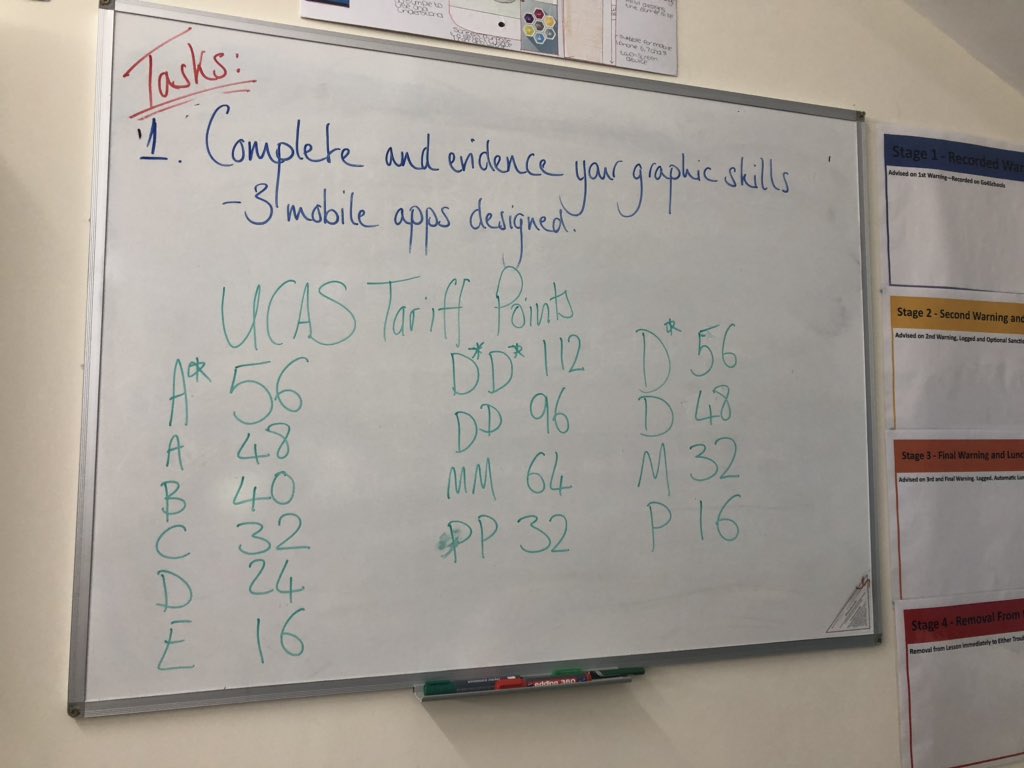 understand
Tasks:
1. Complete and evidence your graphic skills
- 3 mobile apps designed.
UCAS Tariff Points
A* 56
A 48
B 40
C 32
D 24
E 16
D*D* 112
DD 96
MM 64
PP 32
D* 56
D 48
M 32
P 16
edding 360
Stage 1 - Recorded
Advised on 1st Warning - Recorded on Go4Schools
Stage 2 - Second Warning and
Advised on 2nd Warning, Logged and Optional
Stage 3 - Final Warning and
Advised on 3rd and Final Warning. Logged. Automatic
Stage 4 - Removal From
Removal from Lesson immediately to Either